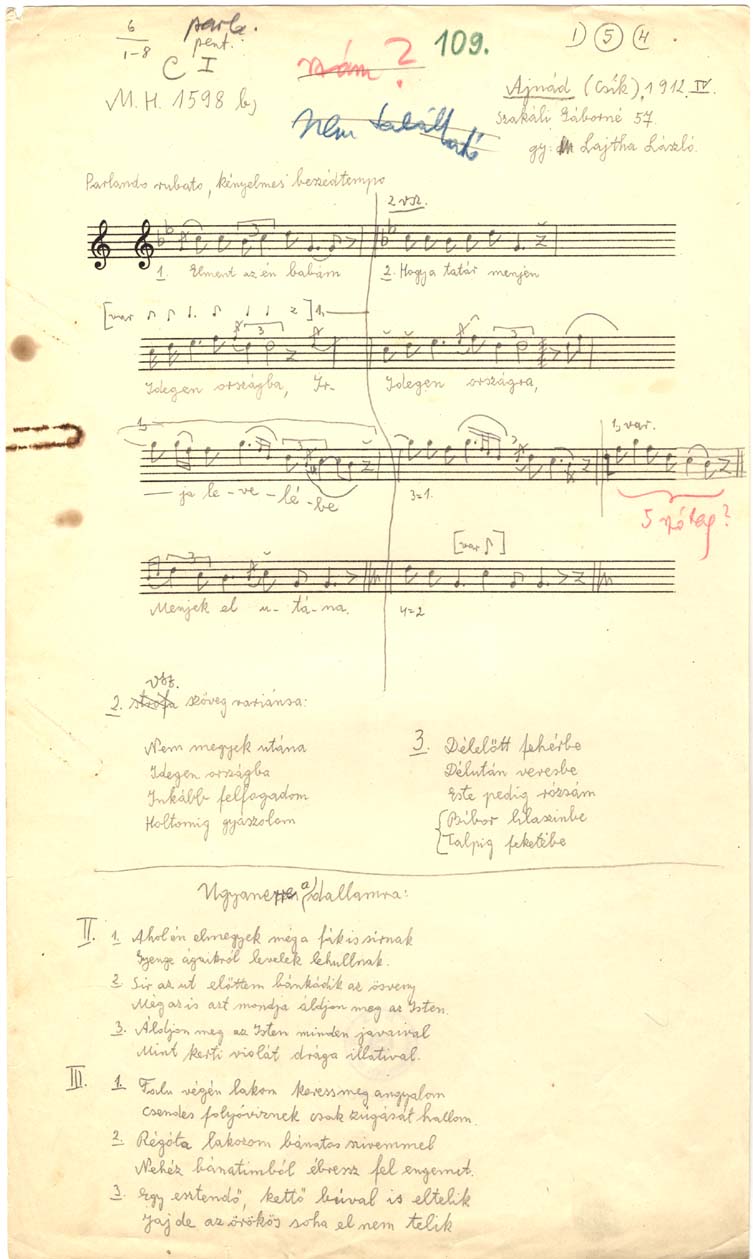 6
1-8
parl.
pent.
C I
szám?
109.
1) 5 4
M. H. 1598 b,
nem található
Ajnád (Csík), 1912. IV.
Szakáli Gáborné 57.
gy: Lajtha László.
Parlando rubato, kényelmes beszédtempo
2 vsz.
3
1. Elment az én babám
2. Hogya tatár menjén
[var ] 1.
3 3
Idegen országba, Ir-
Idegen országra,
1, 1, var.
3
ja le-ve-lé-be
3=1.
5 szótag?
3
[var ]
Menjek el u-tá-na.
4=2
vsz.
2. strófa szöveg variánsa:
Nem megyek utána
Idegen országba
Inkább felfogadom
Holtomig gyászolom
3. Délelőtt fehérbe
Délután veresbe
Este pedig rózsám
Bíbor lilaszinbe
Talpig feketébe
Ugyane a dallamra:
II. 1. Ahol én elmegyek még a fák is sírnak
Gyenge ágaikról levelek lehullnak.
2 Sir az ut előttem bánkódik az ösveny
Még az is azt mondja áldjon meg az Isten.
3. Áldjon meg az Isten minden javaival
Mint kerti violát drága illatival.
III. 1. Falu végén lakom keress meg angyalom
Csendes folyóviznek csak zúgását hallom.
2. Régóta lakozom bánatos szivemmel
Nehéz bánatimból ébressz fel engemet.
3. Egy esztendő, kettő búval is eltelik
Jaj de az örökös soha el nem telik